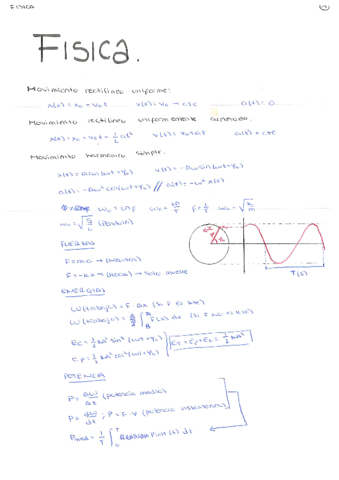 FISICA
FISICA.
Movimiento rectilineo uniforme:
x(t) = x₀ + v₀t v(t) = v₀ → cte a(t) = 0
Movimiento rectilineo uniformemente acelerado.
x(t) = x₀ + v₀t + 1/2 at² v(t) = v₀ + at a(t) = cte
Movimiento harmonico simple.
x(t) = A cos(ω₀t + φ₀) v(t) = -Aω₀ sin(ω₀t + φ₀)
a(t) = -Aω₀² cos(ω₀t + φ₀) // a(t) = -ω₀² x(t)
ω₀ = 2πF ω₀ = 2π/T F = 1/T ω₀ = √(k/m)
ω₀ = √(g/L) (Péndulo)
FUERZAS
F = m·a → (Newton)
F = -k·x → (Hooke) → solo muelle
T(s)
ENERGIAS
W (trabajo) = F · Δx (si F es cte)
W (trabajo) = ∫ F(x) dx (si F no es cte)
Ec = 1/2 kA² sin² (ωt + φ₀)
Ep = 1/2 kA² cos² (ωt + φ₀)
POTENCIA
P = Δω/Δt (potencia media)
P = dω/dt ; P = F · v (potencia instantanea)
Pmed = 1/T ∫ Pinst (t) dt